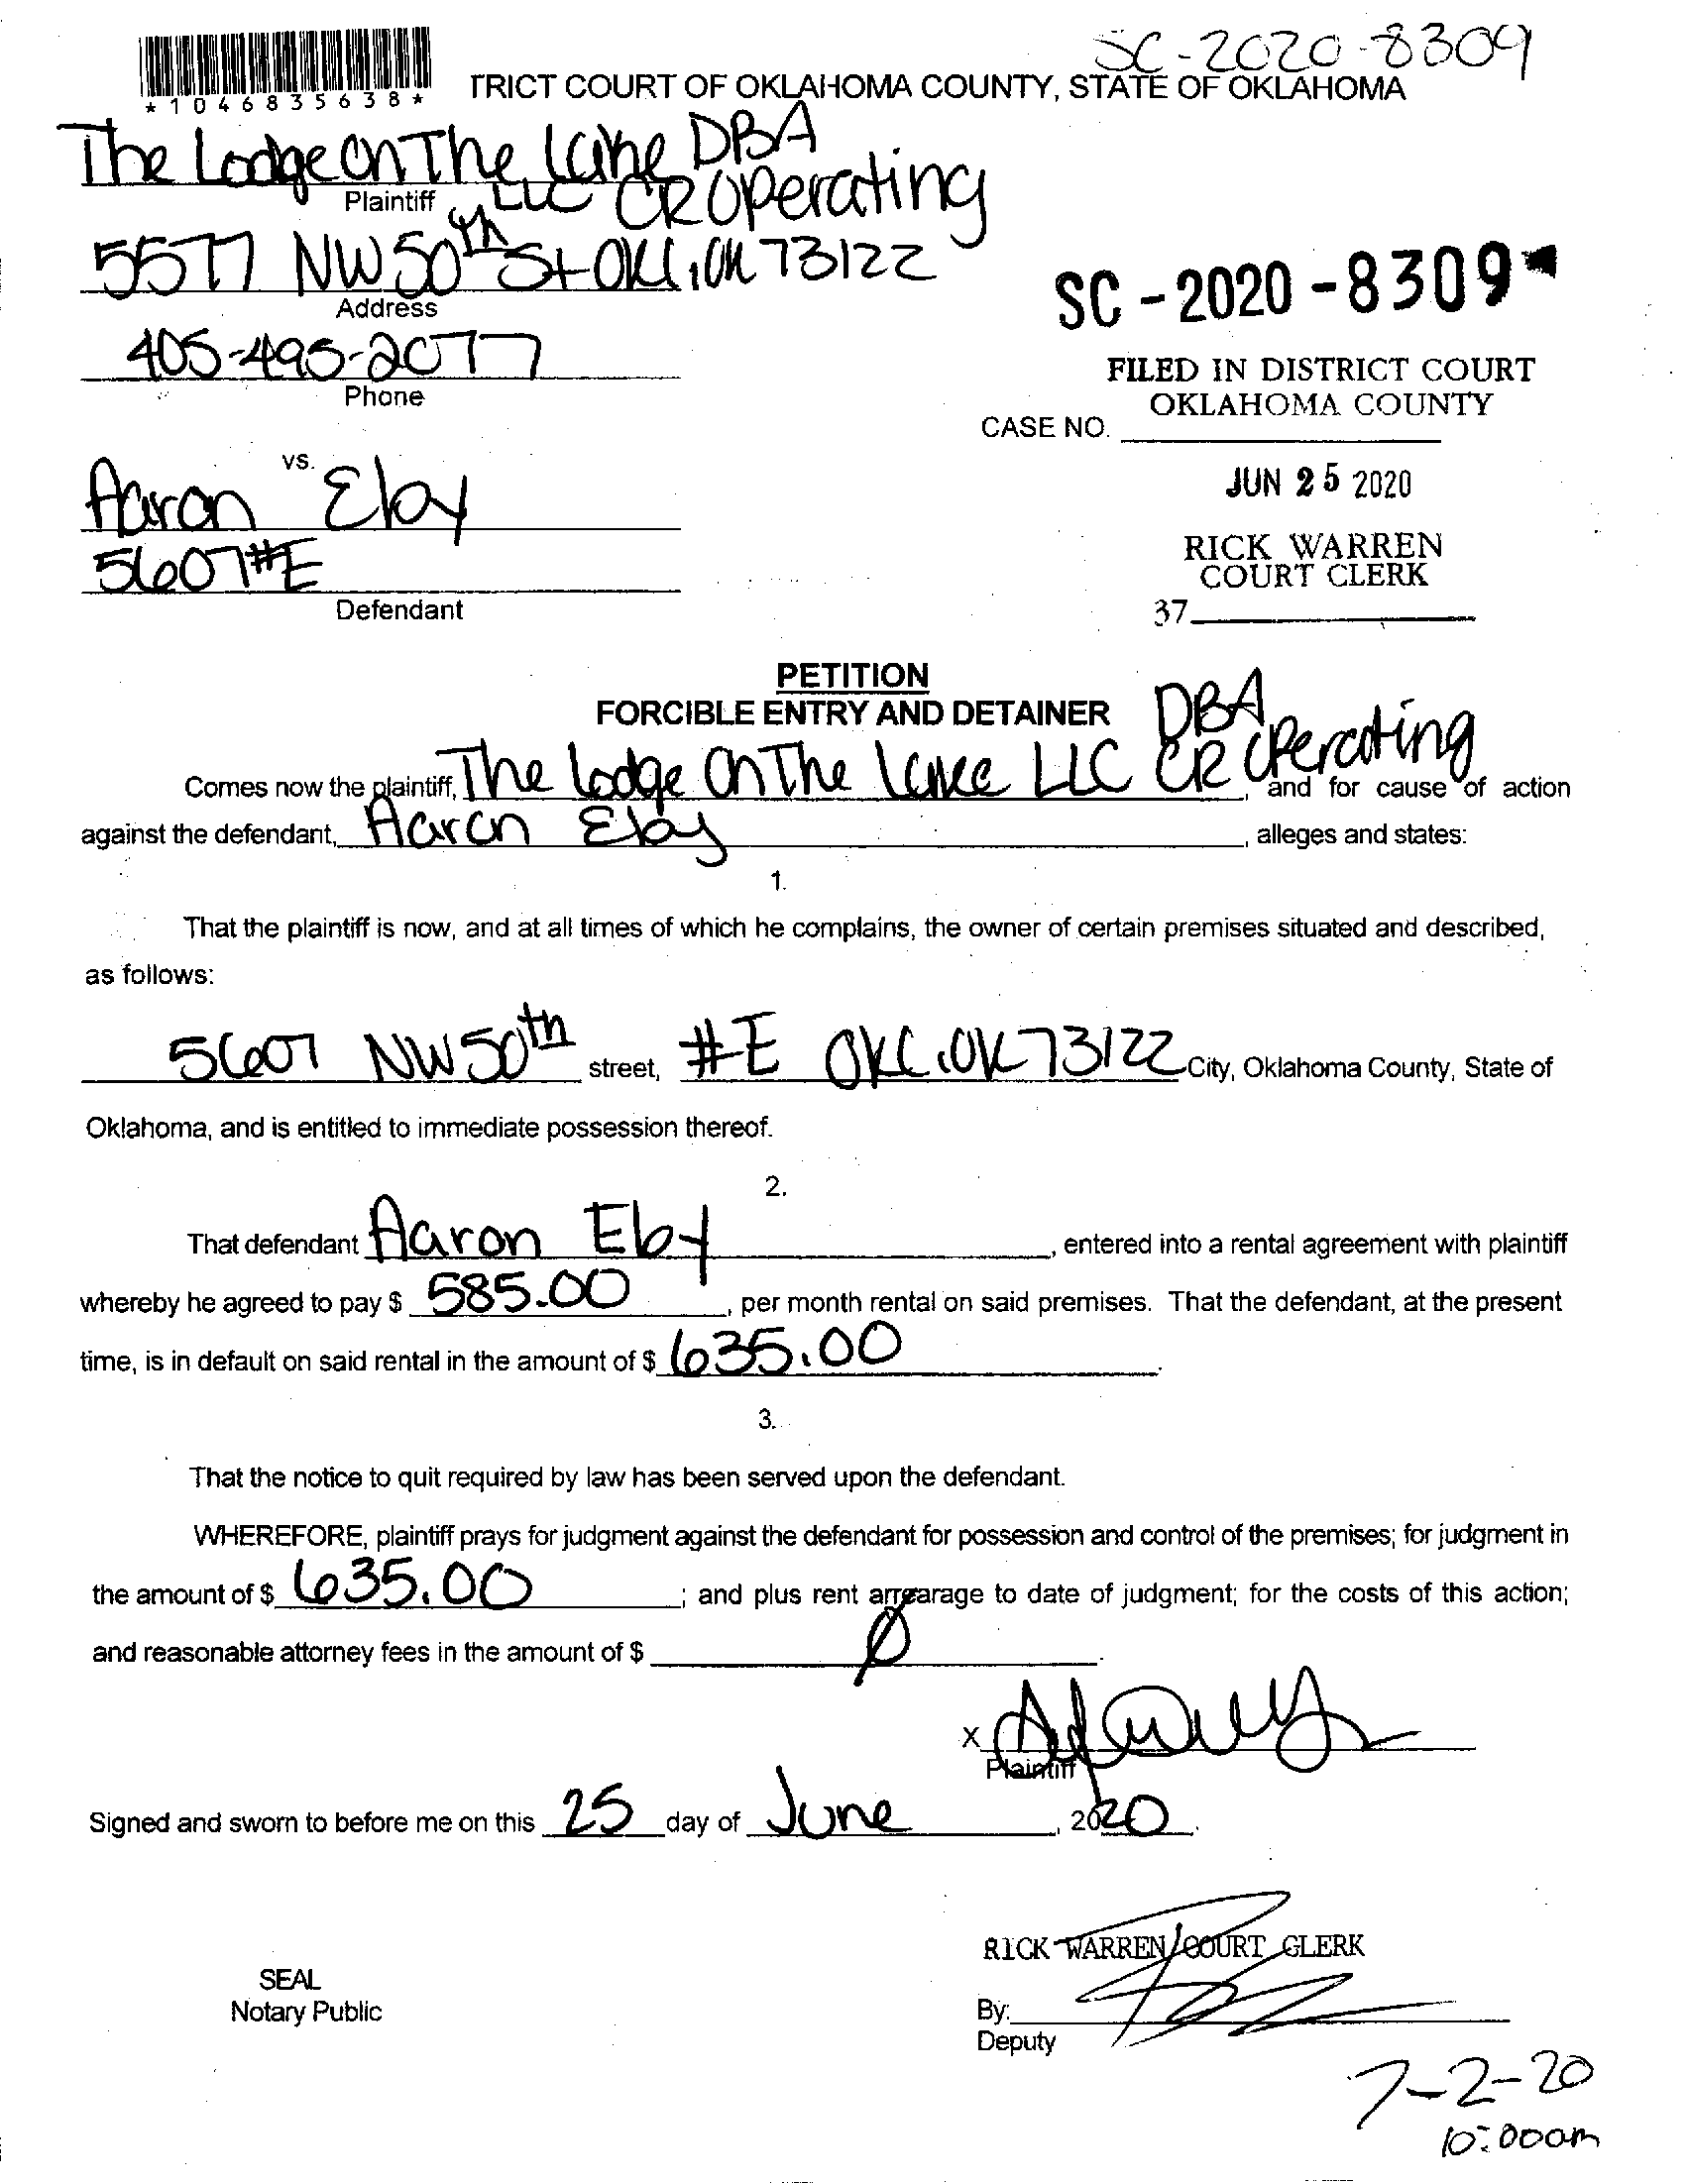 SC-2020-8309
*1046835638*
TRICT COURT OF OKLAHOMA COUNTY, STATE OF OKLAHOMA
The Lodge On The Lake DBA
Plaintiff LLC CR Operating
5577 NW 50th St OKC, OK 73122
Address
SC-2020-8309
405-495-2077
Phone
FILED IN DISTRICT COURT
OKLAHOMA COUNTY
CASE NO.
JUN 25 2020
vs.
Aaron Eby
5607 #E
Defendant
RICK WARREN
COURT CLERK
37
PETITION
FORCIBLE ENTRY AND DETAINER
DBA
Comes now the plaintiff, The Lodge On The Lake LLC CR Operating, and for cause of action
against the defendant, Aaron Eby, alleges and states:
1.
That the plaintiff is now, and at all times of which he complains, the owner of certain premises situated and described,
as follows:
5607 NW 50th street, #E OKC, OK 73122 City, Oklahoma County, State of
Oklahoma, and is entitled to immediate possession thereof.
2.
That defendant Aaron Eby, entered into a rental agreement with plaintiff
whereby he agreed to pay $ 585.00, per month rental on said premises. That the defendant, at the present
time, is in default on said rental in the amount of $ 635.00.
3.
That the notice to quit required by law has been served upon the defendant.
WHEREFORE, plaintiff prays for judgment against the defendant for possession and control of the premises; for judgment in
the amount of $ 635.00; and plus rent arrearage to date of judgment; for the costs of this action;
and reasonable attorney fees in the amount of $ Ø.
X
Plaintiff
Signed and sworn to before me on this 25 day of June, 2020.
RICK WARREN, COURT CLERK
SEAL
Notary Public
By:
Deputy
7-2-20
10:00am